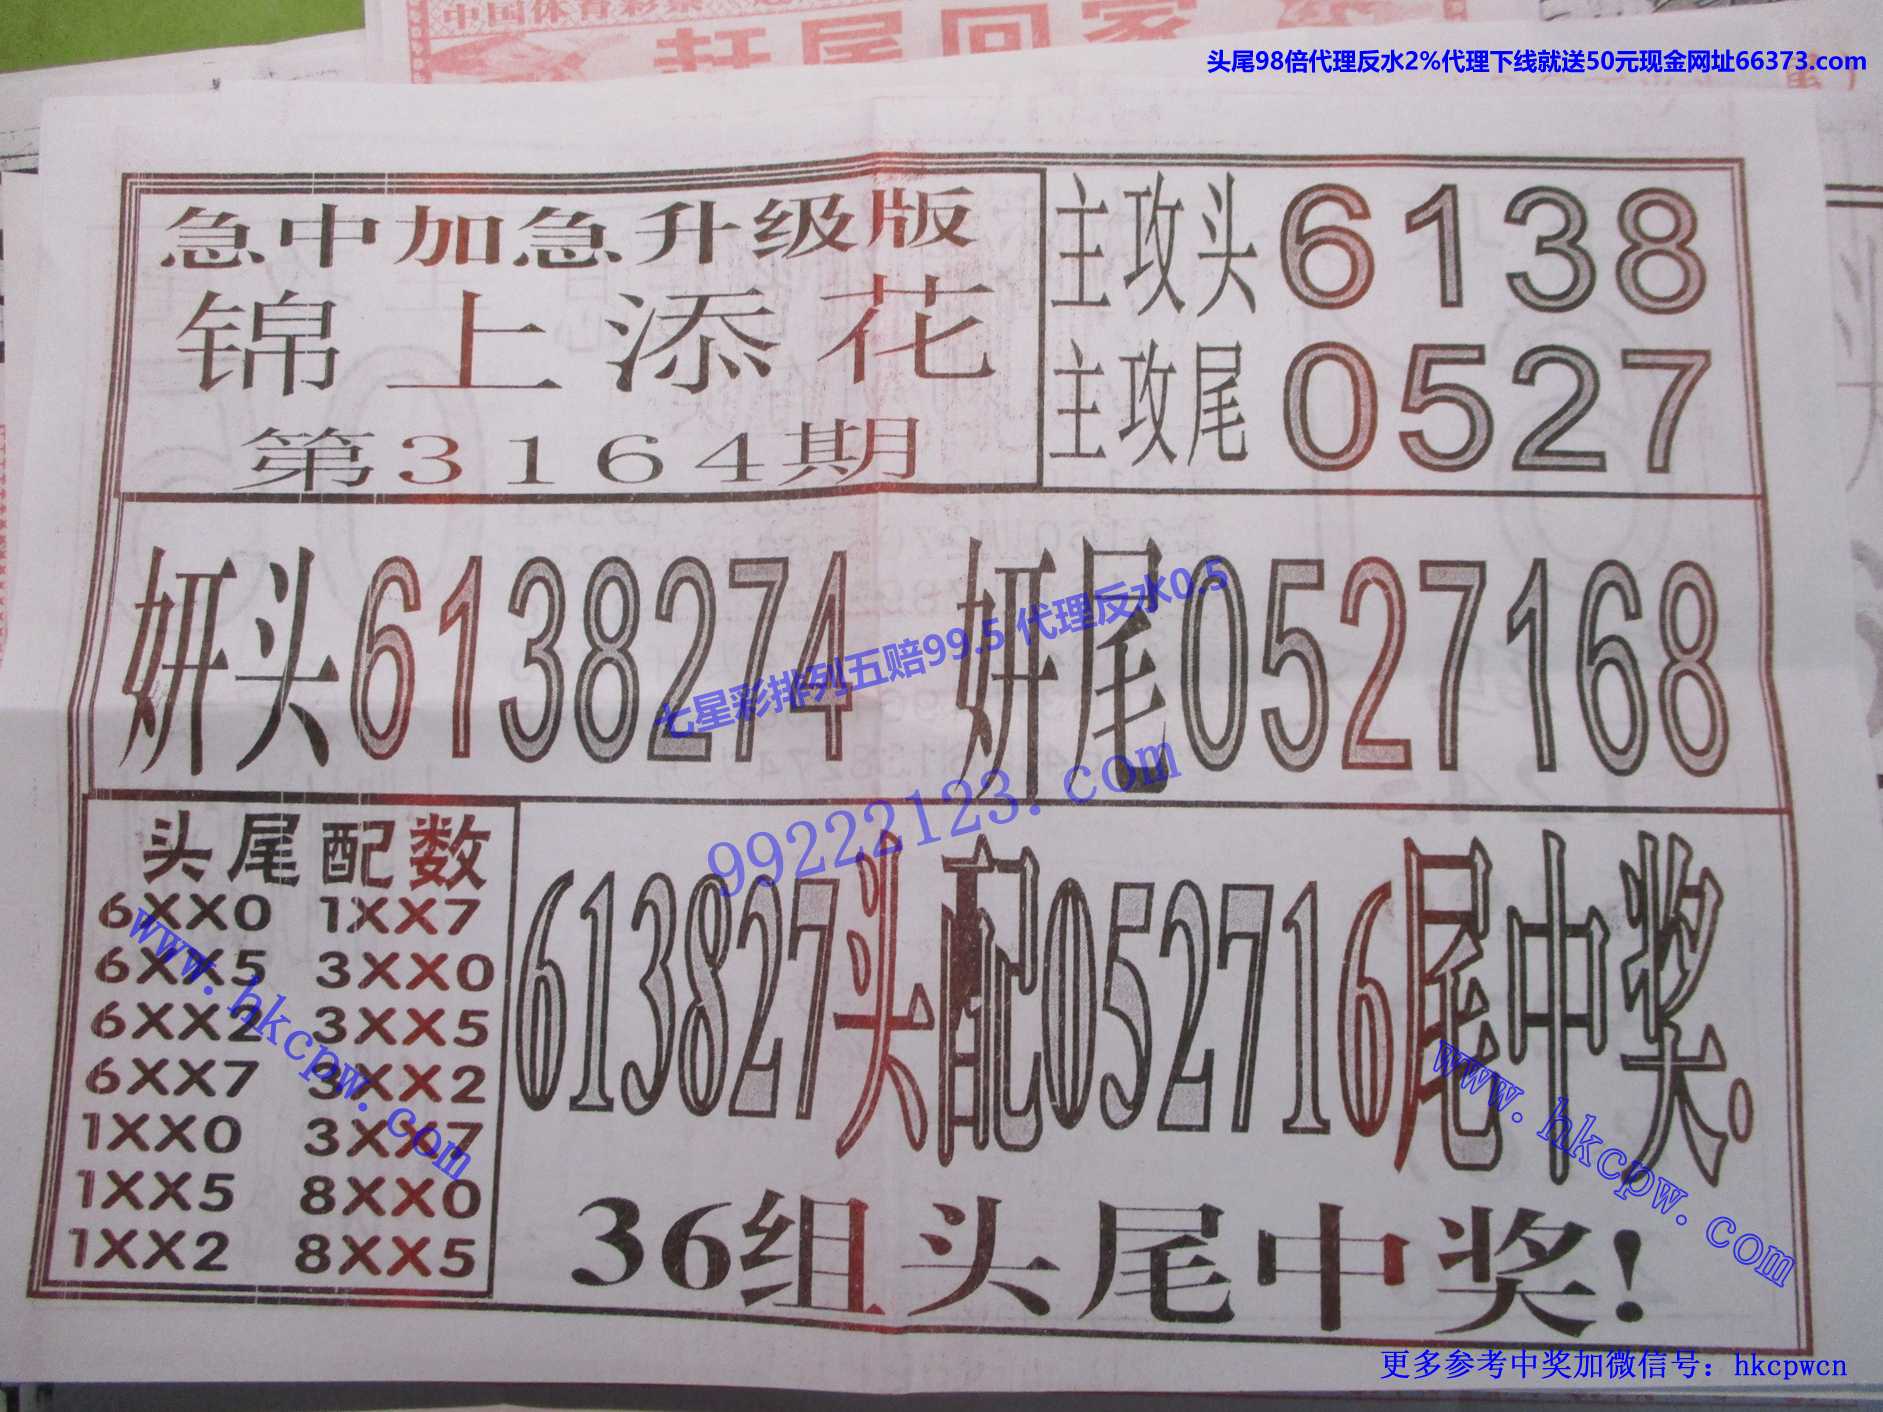 中国体育彩票
赶尾回家
头尾98倍代理反水2%代理下线就送50元现金网址66373.com
急中加急升级版
锦上添花
第3164期
主攻头6138
主攻尾0527
妍头6138274 妍尾0527168
七星彩排列五赔99.5 代理反水0.5
99222123.com
头尾配数
6XX0 1XX7
6XX5 3XX0
6XX2 3XX5
6XX7 3XX2
1XX0 3XX7
1XX5 8XX0
1XX2 8XX5
www.hkcpw.com
613827头配052716尾中奖.
36组头尾中奖!
www.hkcpw.com
更多参考中奖加微信号：hkcpwcn